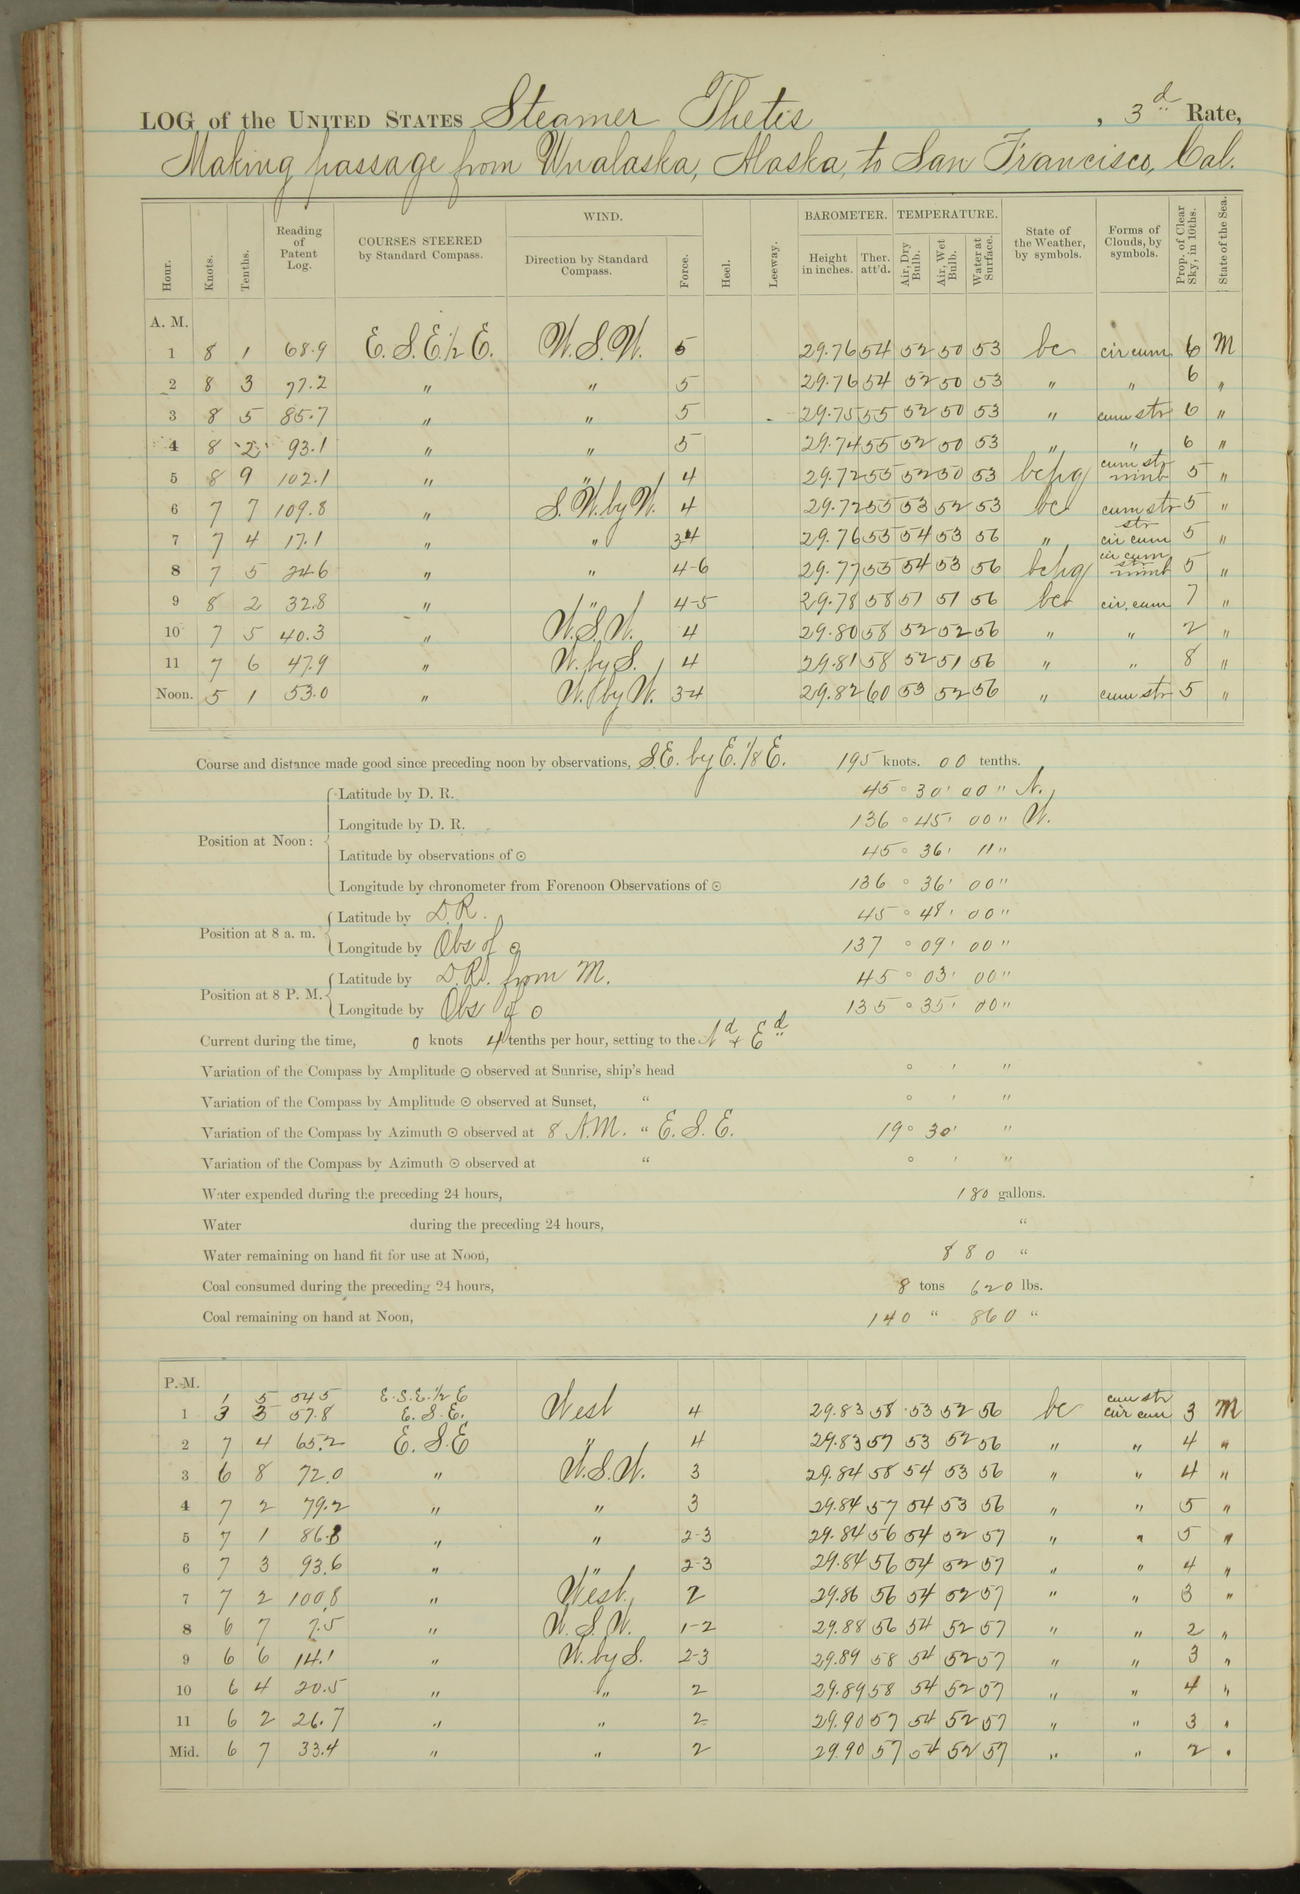 LOG of the UNITED STATES Steamer Thetis, 3d Rate,
Making passage from Unalaska, Alaska, to San Francisco, Cal.
Hour. Knots. Tenths. Reading of Patent Log. COURSES STEERED by Standard Compass. WIND. Direction by Standard Compass. Force. Heel. Leeway. BAROMETER. Height in inches. Ther. att'd. TEMPERATURE. Air, Dry Bulb. Air, Wet Bulb. Water at Surface. State of the Weather, by symbols. Forms of Clouds, by symbols. Prop. of Clear Sky, in 10ths. State of the Sea.
A. M.
1 8 1 68.9 E. S. E. 1/2 E. W. S. W. 5 29.76 54 52 50 53 bc cir cum 6 M
2 8 3 77.2 " " 5 29.76 54 52 50 53 " " 6 "
3 8 5 85.7 " " 5 29.75 55 52 50 53 " cum str 6 "
4 8 2 93.1 " " 5 29.74 55 52 50 53 " " 6 "
5 8 9 102.1 " " 4 29.72 55 52 50 53 bcpq cum str nimb 5 "
6 7 7 109.8 " S. W. by W. 4 29.72 55 53 52 53 bc cum str 5 "
7 7 4 17.1 " " 34 29.76 55 54 53 56 " str cir cum 5 "
8 7 5 24.6 " " 4-6 29.77 55 54 53 56 bcpq cir cum str nimb 5 "
9 8 2 32.8 " " 4-5 29.78 58 51 51 56 bc cir. cum 7 "
10 7 5 40.3 " W. S. W. 4 29.80 58 52 52 56 " " 2 "
11 7 6 47.9 " W. by S. 4 29.81 58 52 51 56 " " 8 "
Noon. 5 1 53.0 " W. by W. 34 29.82 60 53 52 56 " cum str 5 "
Course and distance made good since preceding noon by observations, S.E. by E. 1/8 E. 195 knots. 00 tenths.
Position at Noon: Latitude by D. R. 45 ° 30 ' 00 " N.
Longitude by D. R. 136 ° 45 ' 00 " W.
Latitude by observations of ⊙ 45 ° 36 ' 11 "
Longitude by chronometer from Forenoon Observations of ⊙ 136 ° 36 ' 00 "
Position at 8 a. m. Latitude by D. R. 45 ° 48 ' 00 "
Longitude by Obs of ⊙ 137 ° 09 ' 00 "
Position at 8 P. M. Latitude by D. R. from M. 45 ° 03 ' 00 "
Longitude by Obs of ⊙ 135 ° 35 ' 00 "
Current during the time, 0 knots 4 tenths per hour, setting to the Nd + Ed
Variation of the Compass by Amplitude ⊙ observed at Sunrise, ship's head ° ' "
Variation of the Compass by Amplitude ⊙ observed at Sunset, " ° ' "
Variation of the Compass by Azimuth ⊙ observed at 8 A.M. " E. S. E. 19 ° 30 ' "
Variation of the Compass by Azimuth ⊙ observed at " ° ' "
Water expended during the preceding 24 hours, 180 gallons.
Water during the preceding 24 hours, "
Water remaining on hand fit for use at Noon, 880 "
Coal consumed during the preceding 24 hours, 8 tons 620 lbs.
Coal remaining on hand at Noon, 140 " 860 "
P. M.
1 5 54 5 E. S. E. 1/2 E cum str
1 3 3 57.8 E. S. E. West 4 29.83 58 53 52 56 bc cir cum 3 M
2 7 4 65.2 E. S. E " 4 29.83 57 53 52 56 " " 4 "
3 6 8 72.0 " W. S. W. 3 29.84 58 54 53 56 " " 4 "
4 7 2 79.2 " " 3 29.84 57 54 53 56 " " 5 "
5 7 1 86.3 " " 2-3 29.84 56 54 52 57 " " 5 "
6 7 3 93.6 " " 2-3 29.84 56 54 52 57 " " 4 "
7 7 2 100.8 " West 2 29.86 56 54 52 57 " " 3 "
8 6 7 7.5 " W. S. W. 1-2 29.88 56 54 52 57 " " 2 "
9 6 6 14.1 " W. by S. 2-3 29.89 58 54 52 57 " " 3 "
10 6 4 20.5 " " 2 29.89 58 54 52 57 " " 4 "
11 6 2 26.7 " " 2 29.90 57 54 52 57 " " 3 "
Mid. 6 7 33.4 " " 2 29.90 57 54 52 57 " " 2 "